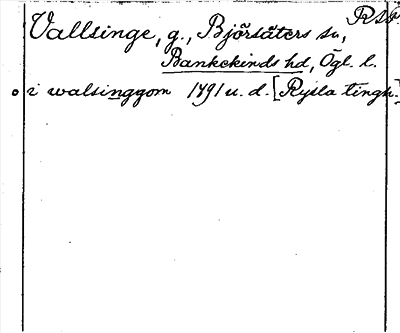 Vallsinge, g., Björsäters sn,
Bankekinds hd, Ögl. l.
i walsinggom 1491 u. d. [Rysla tingk.]